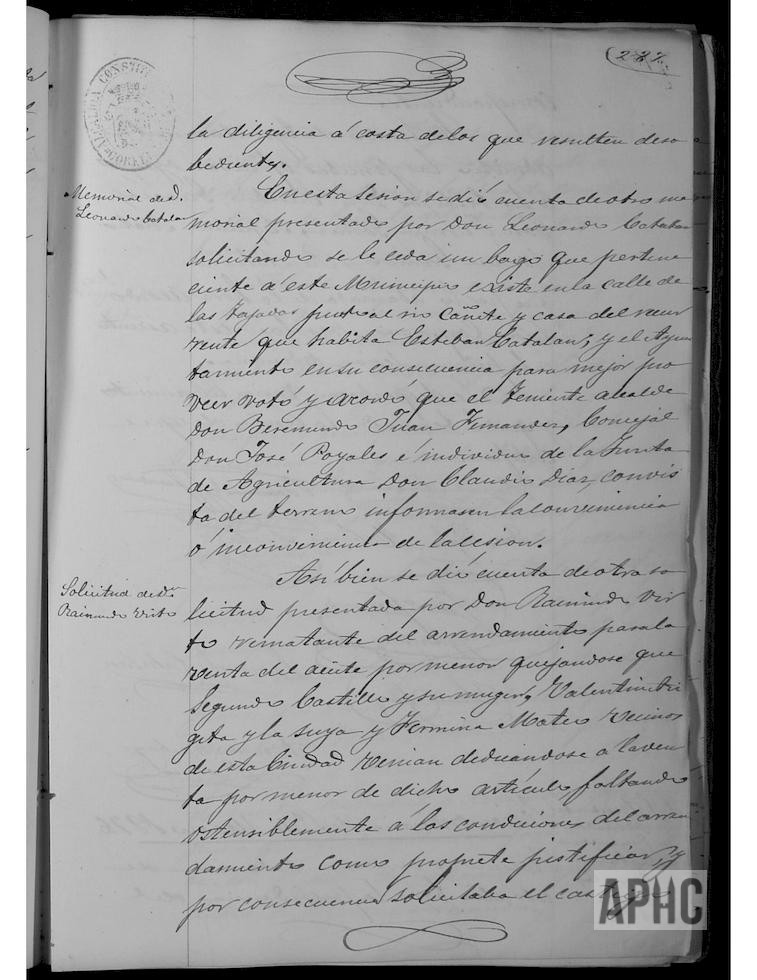 la diligencia á costa delos que resulten deso
bedientes.
Memorial de D.
Leonardo Catalan
En esta sesion se dió cuenta de otro me
morial presentado por Don Leonardo Catalan
solicitando se le ceda un bago que pertene
ciente á este Municipio existe en la calle de
las tajadas junto al rio Cañete y casa del recur
rente que habita Esteban Catalan; y el Ayun
tamiento en su consecuencia para mejor pro
veer votó y acordó que el teniente alcalde
Don Beremundo Juan Fernandez, Concejal
Don José Royales é individuo de la Junta
de Agricultura Don Claudio Diaz, con vis
ta del terreno informasen la conveniencia
ó inconveniencia de la cesion.
Solicitud de Dn
Raimundo Virto
Así bien se dió cuenta de otra so
licitud presentada por Don Raimundo Vir
to rematante del arrendamiento para la
venta del aceite por menor quejandose que
Segundo Castillo y su muger, Valentin
y la suya y Fermina Mateo vecinos
de esta Ciudad venian dedicandose a la ven
ta por menor de dicho artículo, faltando
ostensiblemente á las condiciones del arren
damiento como promete justificar, y
por consecuencia solicitaba el castigo
APHC